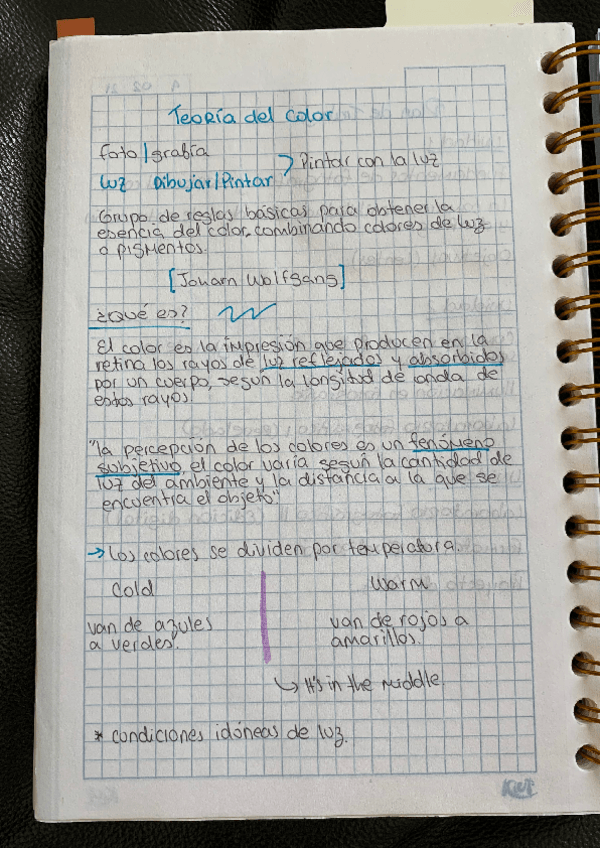 Teoría del color
foto|grabía
luz Dibujar/Pintar > Pintar con la luz
Grupo de reglas básicas para obtener la
esencia del color combinando colores de luz
o pigmentos.
[Joharn Wolfgang]
¿Qué es?
El color es la impresión que producen en la
retina los rayos de luz reflejados y absorbidos
por un cuerpo, segun la longitud de onda de
estos rayos.
"la percepción de los colores es un fenómeno
subjetivo, el color varía según la cantidad de
luz del ambiente y la distancia a la que se
encuentra el objeto"
→ Los colores se dividen por temperatura.
Cold Warm
van de azules van de rojos a
a verdes. amarillos.
↳ It's in the middle.
* condiciones idóneas de luz.